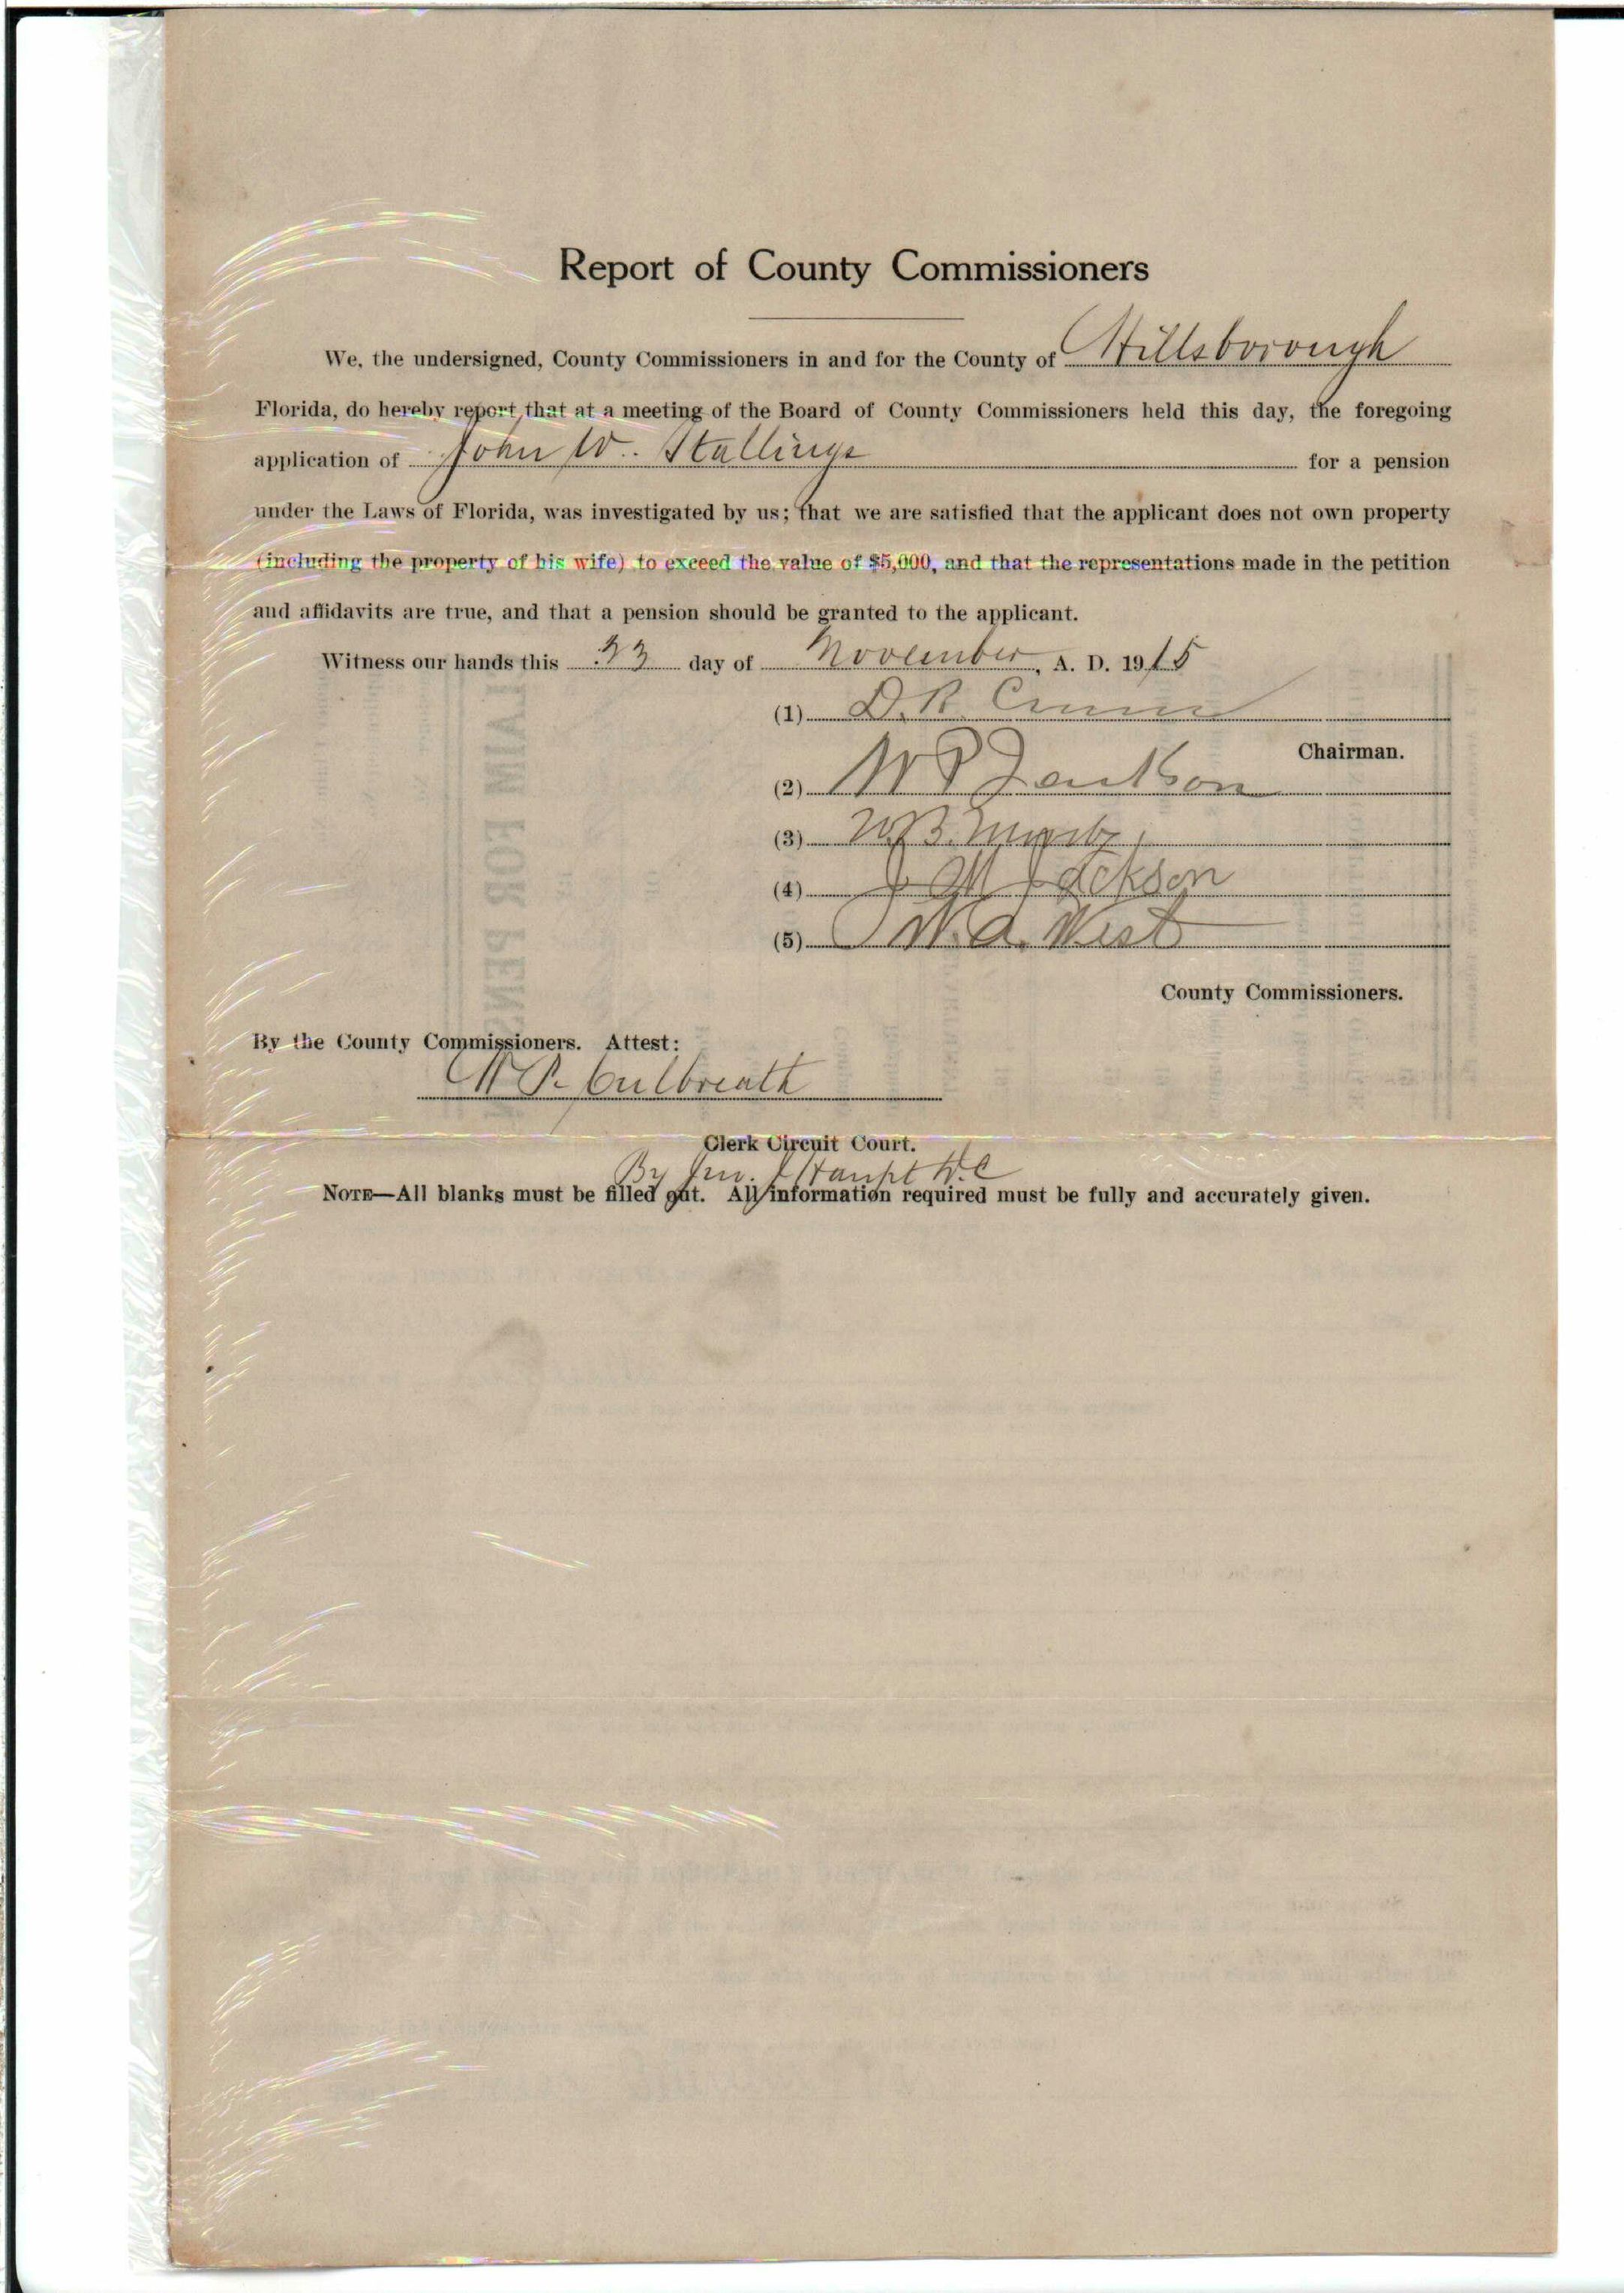 Report of County Commissioners
We, the undersigned, County Commissioners in and for the County of Hillsborough
Florida, do hereby report that at a meeting of the Board of County Commissioners held this day, the foregoing
application of John W. Stallings for a pension
under the Laws of Florida, was investigated by us; that we are satisfied that the applicant does not own property
(including the property of his wife) to exceed the value of $5,000, and that the representations made in the petition
and affidavits are true, and that a pension should be granted to the applicant.
Witness our hands this day of November, A. D. 1915
(1) D. R.
Chairman.
(2) W P Jackson
(3) W. B.
(4) J M Jackson
(5) W. A. West
County Commissioners.
By the County Commissioners. Attest:
W P. Culbreath
Clerk Circuit Court.
By Jno. Haupt D.C
NOTE—All blanks must be filled out. All information required must be fully and accurately given.